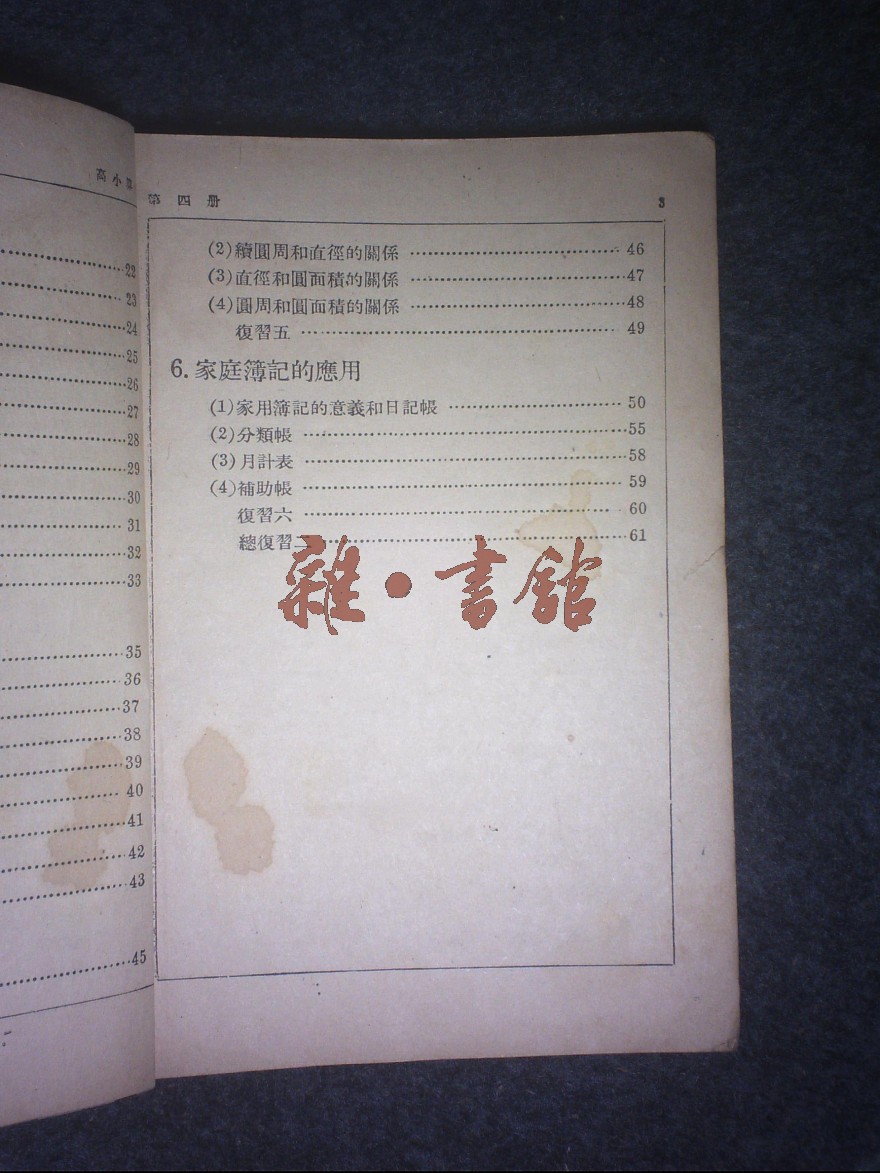 高小
22
23
24
25
26
27
28
29
30
31
32
33
35
36
37
38
39
40
41
42
43
45
第四册 3
(2)續圓周和直徑的關係 …… 46
(3)直徑和圓面積的關係 …… 47
(4)圓周和圓面積的關係 …… 48
復習五 …… 49
6.家庭簿記的應用
(1)家用簿記的意義和日記帳 …… 50
(2)分類帳 …… 55
(3)月計表 …… 58
(4)補助帳 …… 59
復習六 …… 60
總復習二 …… 61
雜·書館